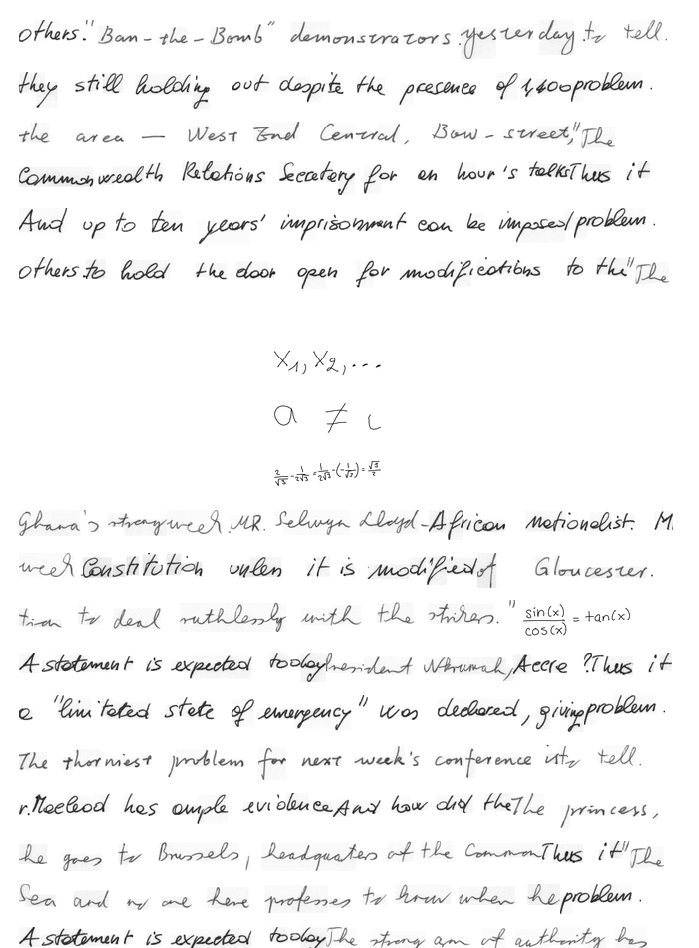 others." "Ban-the-Bomb" demonstrators yesterday. to tell.
they still holding out despite the presence of 1,400 problem.
the area — West End Central, Bow-street," The
Commonwealth Relations Secretary for an hour's talks Thus it
And up to ten years' imprisonment can be imposed problem.
others. to hold the door open for modifications to the "The
x₁, x₂, ...
a ≠ c
2/√3 - 1/2√3 = 1/2√3 - (-1/√3) = √3/2
Ghana's strong week. MR. Selwyn Lloyd - African nationalist. M
week Constitution unless it is modified of Gloucester.
tion to deal ruthlessly with the strikers. " sin(x)/cos(x) = tan(x)
A statement is expected today President Nkrumah, Accra ? Thus it
a "limitated state of emergency" was declared, giving problem.
The thorniest problem for next week's conference is to tell.
r. Macleod has ample evidence And how did the The princess,
he goes to Brussels, headquaters of the Common Thus it "The
Sea and no one here professes to know when he problem.
A statement is expected today The strong arm of authority has